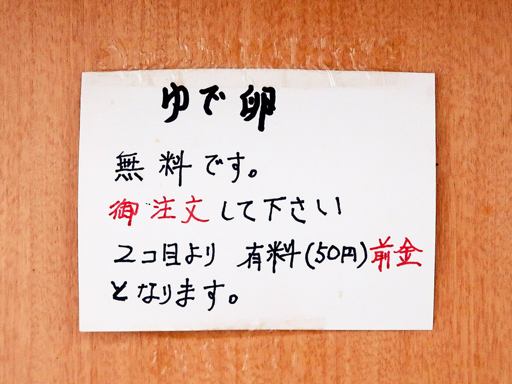 ゆで卵
無料です。
御注文して下さい
2コ目より 有料(50円)前金
となります。